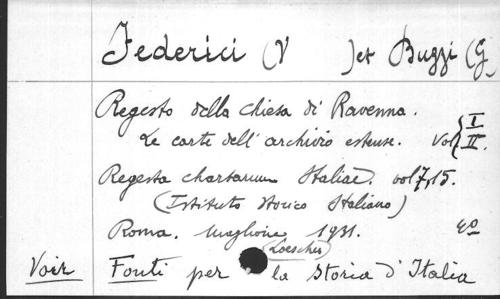 Federici (V      ) et Buzzi (G
Regesto della chiesa di Ravenna.
Le carte dell'archivio estense. Vol { I II.
Regesta chartarum Italiae. vol 7, 15.
(Istituto storico Italiano)
Roma. Maglione 1931. 4o
(Loescher)
Voir Fonti per la Storia d'Italia